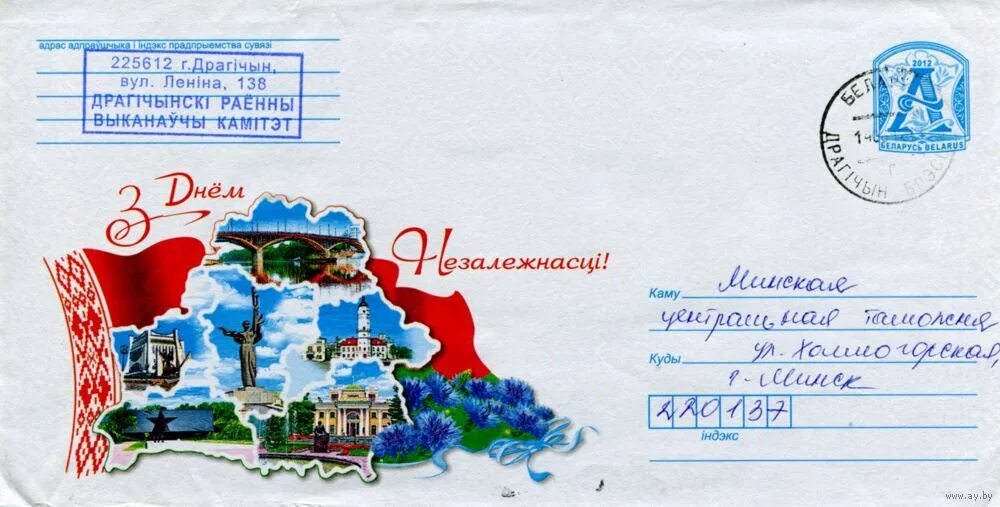 адрас адпраўшчыка і індэкс прадпрыемства сувязі
225612 г.Драгічын,
вул. Леніна, 138
ДРАГІЧЫНСКІ РАЁННЫ
ВЫКАНАЎЧЫ КАМІТЭТ
2012
А
БЕЛАРУСЬ BELARUS
ДРАГІЧЫН
З Днём
Незалежнасці!
Каму Минская
центральная таможня
Куды ул. Холмогорская,
г. Минск
220137
індэкс
www.ay.by